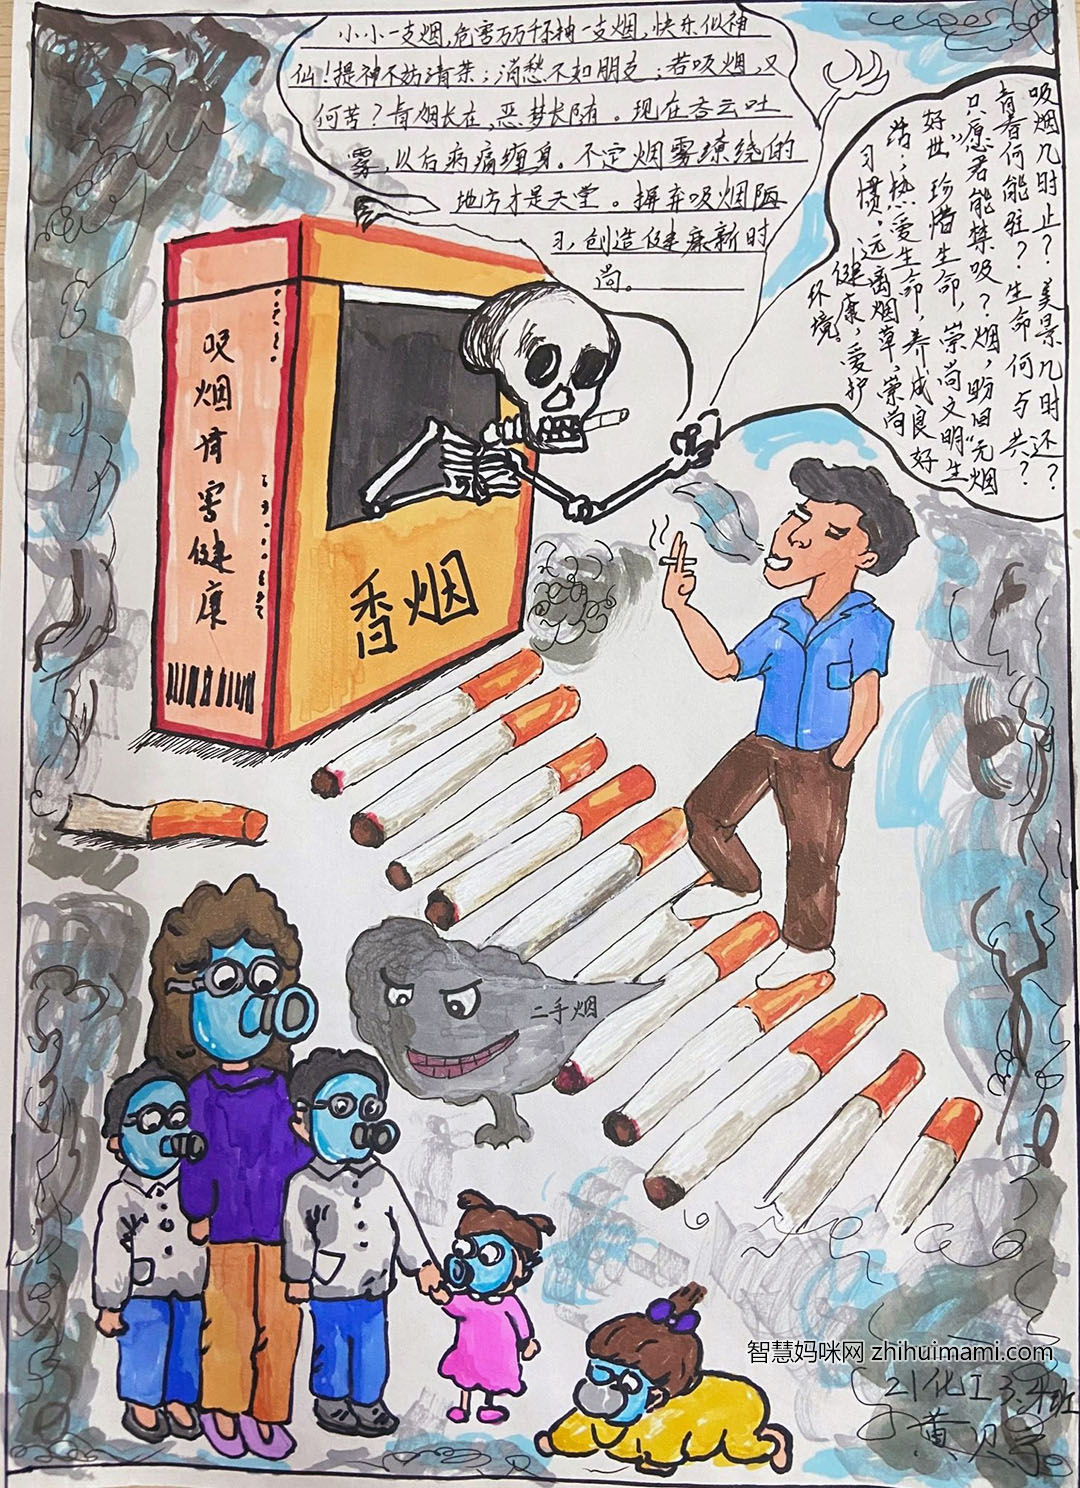 小小一支烟,危害万万千!抽一支烟,快乐似神
仙!提神不妨清茶;消愁不如朋友;若吸烟,又
何苦?肯烟长在,恶梦长随。现在吞云吐
雾,以后病痛缠身。不定烟雾缭绕的
地方才是天堂。摒弃吸烟陋
习,创造健康新时
尚。
吸烟几时止?美景几时还?
青春何能驻?生命何与共?
只愿君能禁吸?烟,盼回“无烟
好世”珍惜生命,崇尚文明生
活;热爱生命,养成良好
习惯,远离烟草,崇尚
健康,爱护
环境。
吸烟有害健康
香烟
二手烟
智慧妈咪网 zhihuimami.com
21化工3.4班